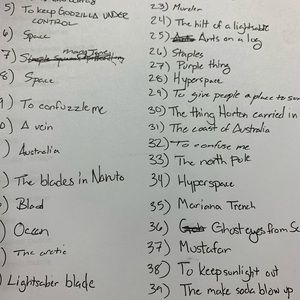 5) To keep GODZILLA UNDER
CONTROL
6) Space
7)
8) Space
9) To confuzzle me
0) A vein
) Australia
) The blades in Naruto
) Blood
) Ocean
) The arctic
) Lightsaber blade
23) Murder
24) The hilt of a lightsable
25) Ants on a log
26) Staples
27) Purple thing
28) Hyperspace
29) To give people a place to su
30) The thing Horton carried in
31) The coast of Australia
32) To confuse me
33) The north pole
34) Hyperspace
35) Mariana Trench
36) Ghost eyes from Sc
37) Mustafar
38) To keep sunlight out
39) The make soda blow up